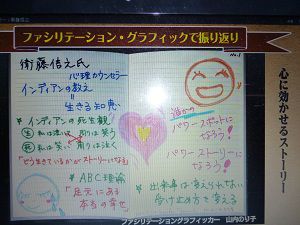 ファシリテーション・グラフィックで振り返り
衛藤信之氏
心理カウンセラー
インディアンの教え
=生きる知恵
インディアンの死生観
生 私は泣いた 周りは笑う
死 私は笑い 周りは泣く
"どう生きているかがストーリーになる"
ABC理論
「足元にある
本当の幸せ」
No.1
誰かの
パワースポットに
なろう!
パワーストーリーに
なろう!
出来事は変えられない
受け止め方で変える
心に効かせるストーリー
ファシリテーショングラフィッカー 山内のり子